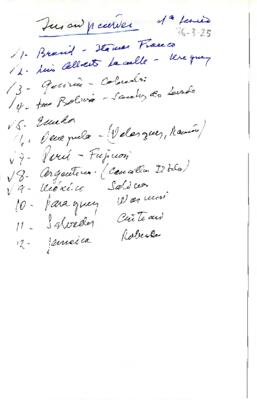 Inscripciones 1ª sesión
1- Brasil - Itamar Franco
2- Luis Alberto Lacalle - Uruguay
3- Gaviria - Colombia
4- Bolivia - Sánchez de Lozada
5- Ecuador
6- Venezuela - (Velasquez, Ramón)
7- Perú - Fujimori
8- Argentina - (
9- México Salinas
10- Paraguay Wasmosi
11- Salvador Cristiani
12- Jamaica